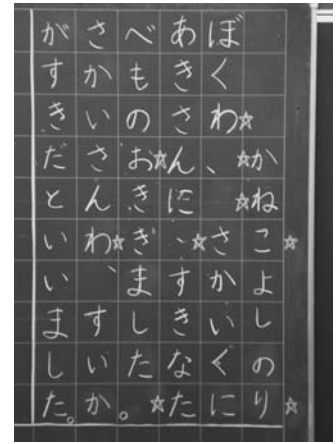 かねこよしのり
ぼくわ、　さかいくに
あきさんに、すきなた
べものおききました。
さかいさんわ、すいか。
がすきだといいました。